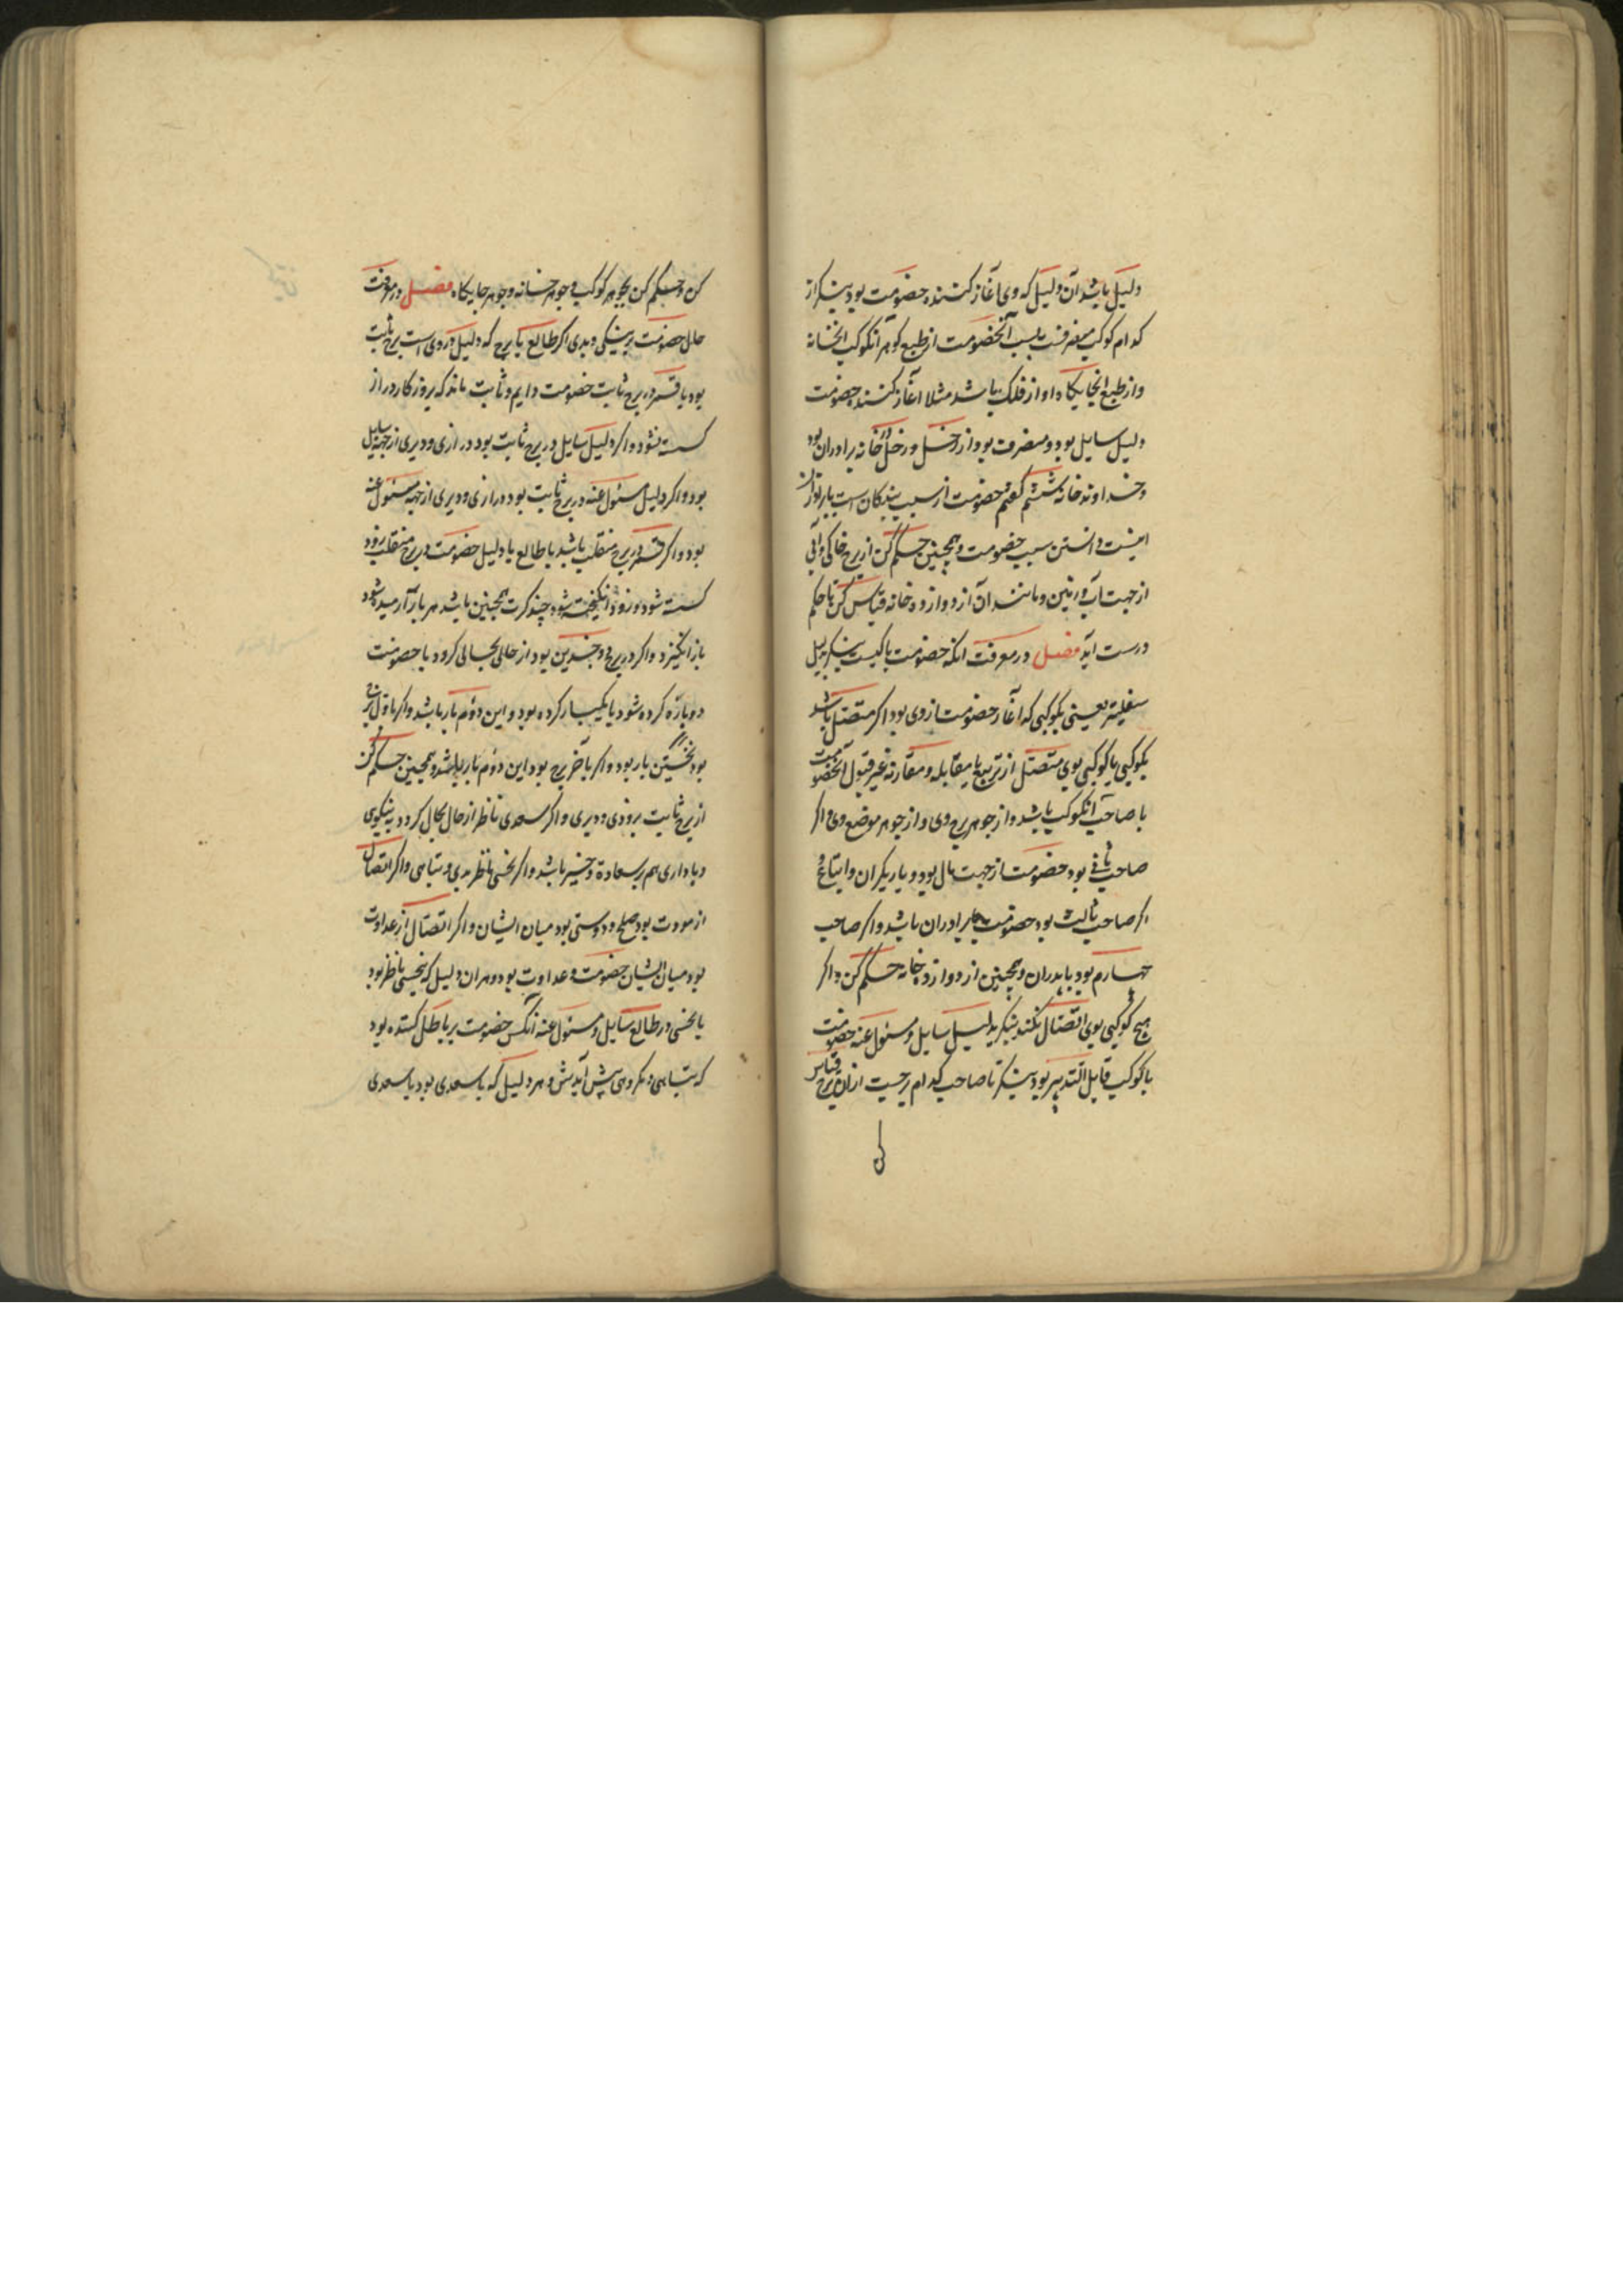 دلیل باشد آن دلیل که وی آغاز کننده خصومت بود بنکر از
کدام کوکب منصرفست سبب آنخصومت از طبع کوهر آنکوکب انخانه
و از طبع انجایکاه او از فلک باشد مثلا آغاز کننده خصومت
دلیل سایل بود و منصرف بود از زحل و زحل در خانه برادران بود
و خداوند خانه ششم کفتم خصومت از سبب بندکان است یا برادران
اینست دانستن سبب خصومت و همچنین حکم کن از برج خاکی و آبی
از جهت آب و زمین و مانند آن از دوازده خانه قیاس کن تا حکم
درست آید فصل در معرفت انکه خصومت با کیست بنکر بدلیل
سفلیتر یعنی بکوکبی که آغاز خصومت از وی بود اکر متصل باشد
بکوکبی یا کوکبی بوی متصل از تربیع یا مقابله و مقارنه غیر قبول آنخصومت
با صاحب آنکوکب باشد و از جوهر برج وی و از جوهر موضع وی و اکر
صاحب ثانی بود خصومت از جهت مال بود و یاریکران و ابتاع و
اکر صاحب ثالث بود خصومت با برادران باشد و اکر صاحب
چهارم بود با پدران و همچنین از دوازده خانه حکم کن و اکر
هیچ کوکبی بوی اتصال نکند بنکر بدلیل سایل و مسئول عنه خصومت
با کوکب قابل التدبیر بود بنکر تا صاحب کدام برجست از ان برج قیاس
کن
کن و حکم کن بجوهر کوکب و جوهر خانه و جوهر جایکاه فصل در معرفت
حال خصومت بر نیکی و بدی اکر طالع یا برج که دلیل در وی است برج ثابت
بود یا قمر در برج ثابت خصومت دایم و ثابت ماند که بروزکار دراز
کسسته نشود و اکر دلیل سایل در برج ثابت بود درازی و دیری از جهة سایل
بود و اکر دلیل مسئول عنه در برج ثابت بود درازی و دیری از جهة مسئول عنه
بود و اکر قمر در برج منقلب باشد یا طالع یا دلیل خصومت در برج منقلب زود
کسسته شود و زود انکیخته شود چند کرت همچنین باشد هر بار آرمیده شود
باز انکیزد و اکر در برج ذو جسدین بود از حالی بحالی کردد یا خصومت
دوباره کرده شود یا یکبار کرده بود و این دوم بار باشد و اکر باول برج
بود نخستین بار بود و اکر بآخر برج بود این دوم بار باشد و همچنین حکم کن
از برج ثابت بزودی و دیری و اکر سعدی ناظر از حال بحال کردد بنیکوی
و یا داری هم بر سعادة و خیر باشد و اکر نحسی ناظر بدی و تباهی و اکر اتصال
از مودت بود صلح و دوستی بود میان ایشان و اکر اتصال از عداوت
بود میان ایشان خصومت و عداوت بود و هر ان دلیل که بنحسی ناظر بود
یا نحسی در طالع سایل و مسئول عنه آنکس خصومت بر باطل کننده بود
که تباهی و مکروهی پیش آیدش و هر دلیل که با سعدی بود یا سعدی